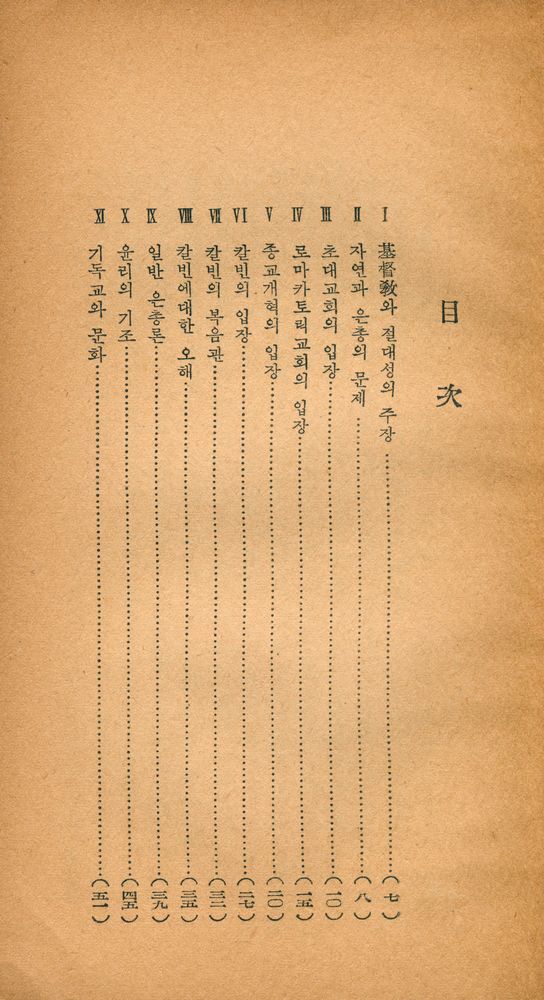 目 次
Ⅰ 基督敎와 절대성의 주장……(七)
Ⅱ 자연과 은총의 문제……(八)
Ⅲ 초대교회의 입장……(一〇)
Ⅳ 로마카토릭교회의 입장……(一五)
Ⅴ 종교개혁의 입장……(二〇)
Ⅵ 칼빈의 입장……(二七)
Ⅶ 칼빈의 복음관……(三二)
Ⅷ 칼빈에대한 오해……(三五)
Ⅸ 일반 은총론……(三九)
Ⅹ 윤리의 기조……(四五)
Ⅺ 기독교와 문화……(五一)